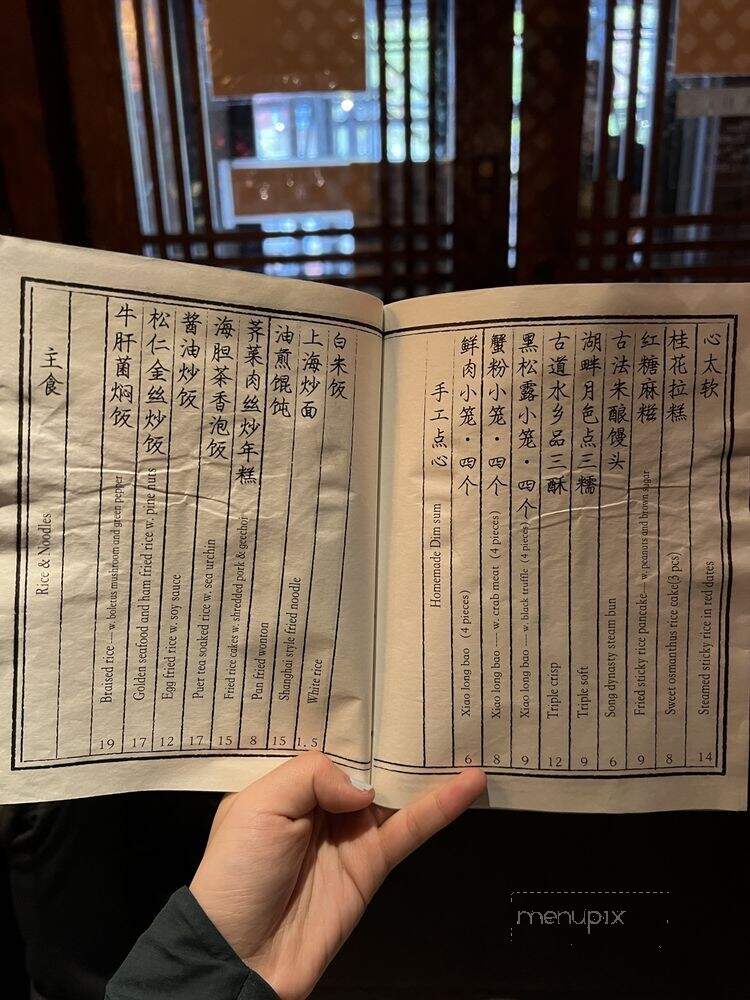 主食 Rice & Noodles
牛肝菌焖饭 Braised rice --- w. boletus mushroom and green pepper 19
松仁金丝炒饭 Golden seafood and ham fried rice w. pine nuts 17
酱油炒饭 Egg fried rice w. soy sauce 12
海胆茶香泡饭 Puer tea soaked rice w. sea urchin 17
荠菜肉丝炒年糕 Fried rice cakes w. shredded pork & geechoi 15
油煎馄饨 Pan fried wonton 8
上海炒面 Shanghai style fried noodle 15
白米饭 White rice 1.5
手工点心 Homemade Dim sum
鲜肉小笼·四个 Xiao long bao (4 pieces) 6
蟹粉小笼·四个 Xiao long bao --- w. crab meat (4 pieces) 8
黑松露小笼·四个 Xiao long bao --- w. black truffle (4 pieces) 9
古道水乡品三酥 Triple crisp 12
湖畔月色点三糯 Triple soft 9
古法米酿馒头 Song dynasty steam bun 6
红糖麻糍 Fried sticky rice pancake--- w. peanuts and brown sugar 9
桂花拉糕 Sweet osmanthus rice cake(3 pcs) 8
心太软 Steamed sticky rice in red dates 14
menupix